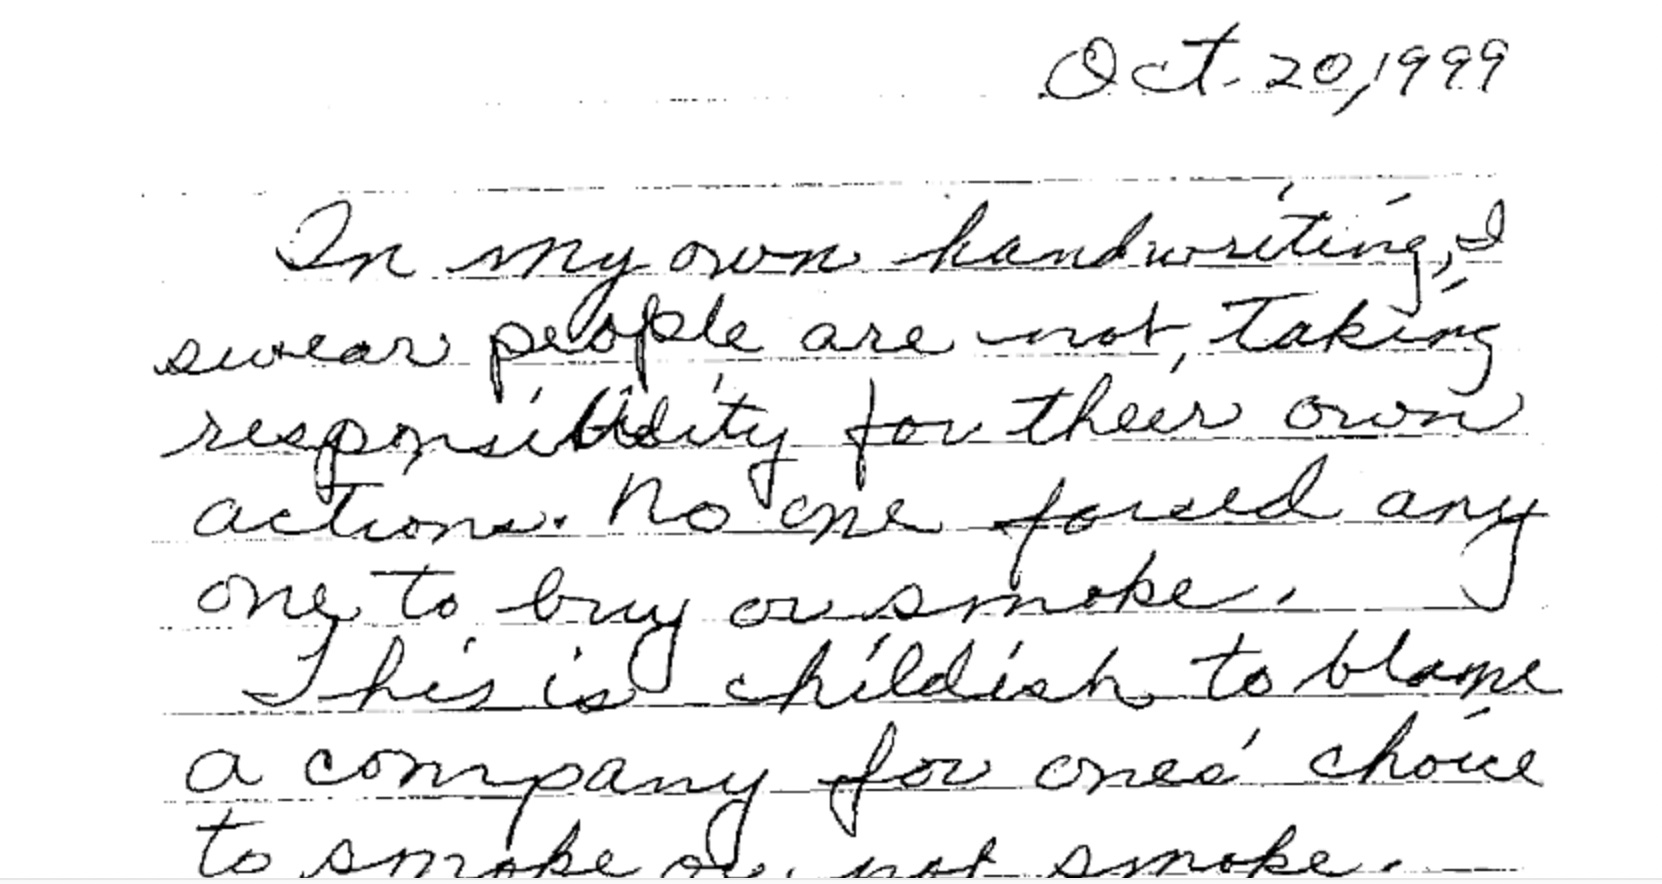 Oct. 20, 1999
In my own handwriting, I
swear people are not taking
responsibility for their own
actions. No one forsed any
one to buy or smoke.
This is childish to blame
a company for ones' choice
to smoke or not smoke.